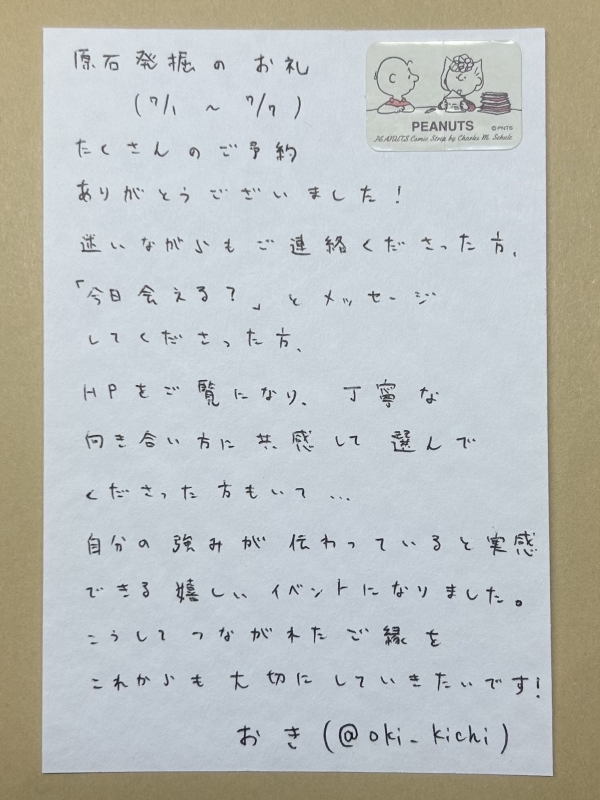 原石発掘のお礼
(7/1 ～ 7/7)
たくさんのご予約
ありがとうございました!
迷いながらもご連絡くださった方、
「今日会える?」とメッセージ
してくださった方、
HPをご覧になり、丁寧な
向き合い方に共感して選んで
くださった方もいて...
自分の強みが伝わっていると実感
できる嬉しいイベントになりました。
こうしてつながれたご縁を
これからも大切にしていきたいです!
おき(@oki_kichi)
PEANUTS ©PNTS
PEANUTS Comic Strip by Charles M. Schulz